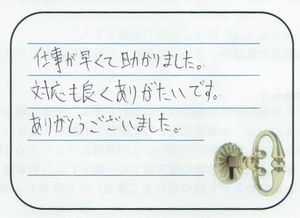 仕事が早くて助かりました。
対応も良くありがたいです。
ありがとうございました。